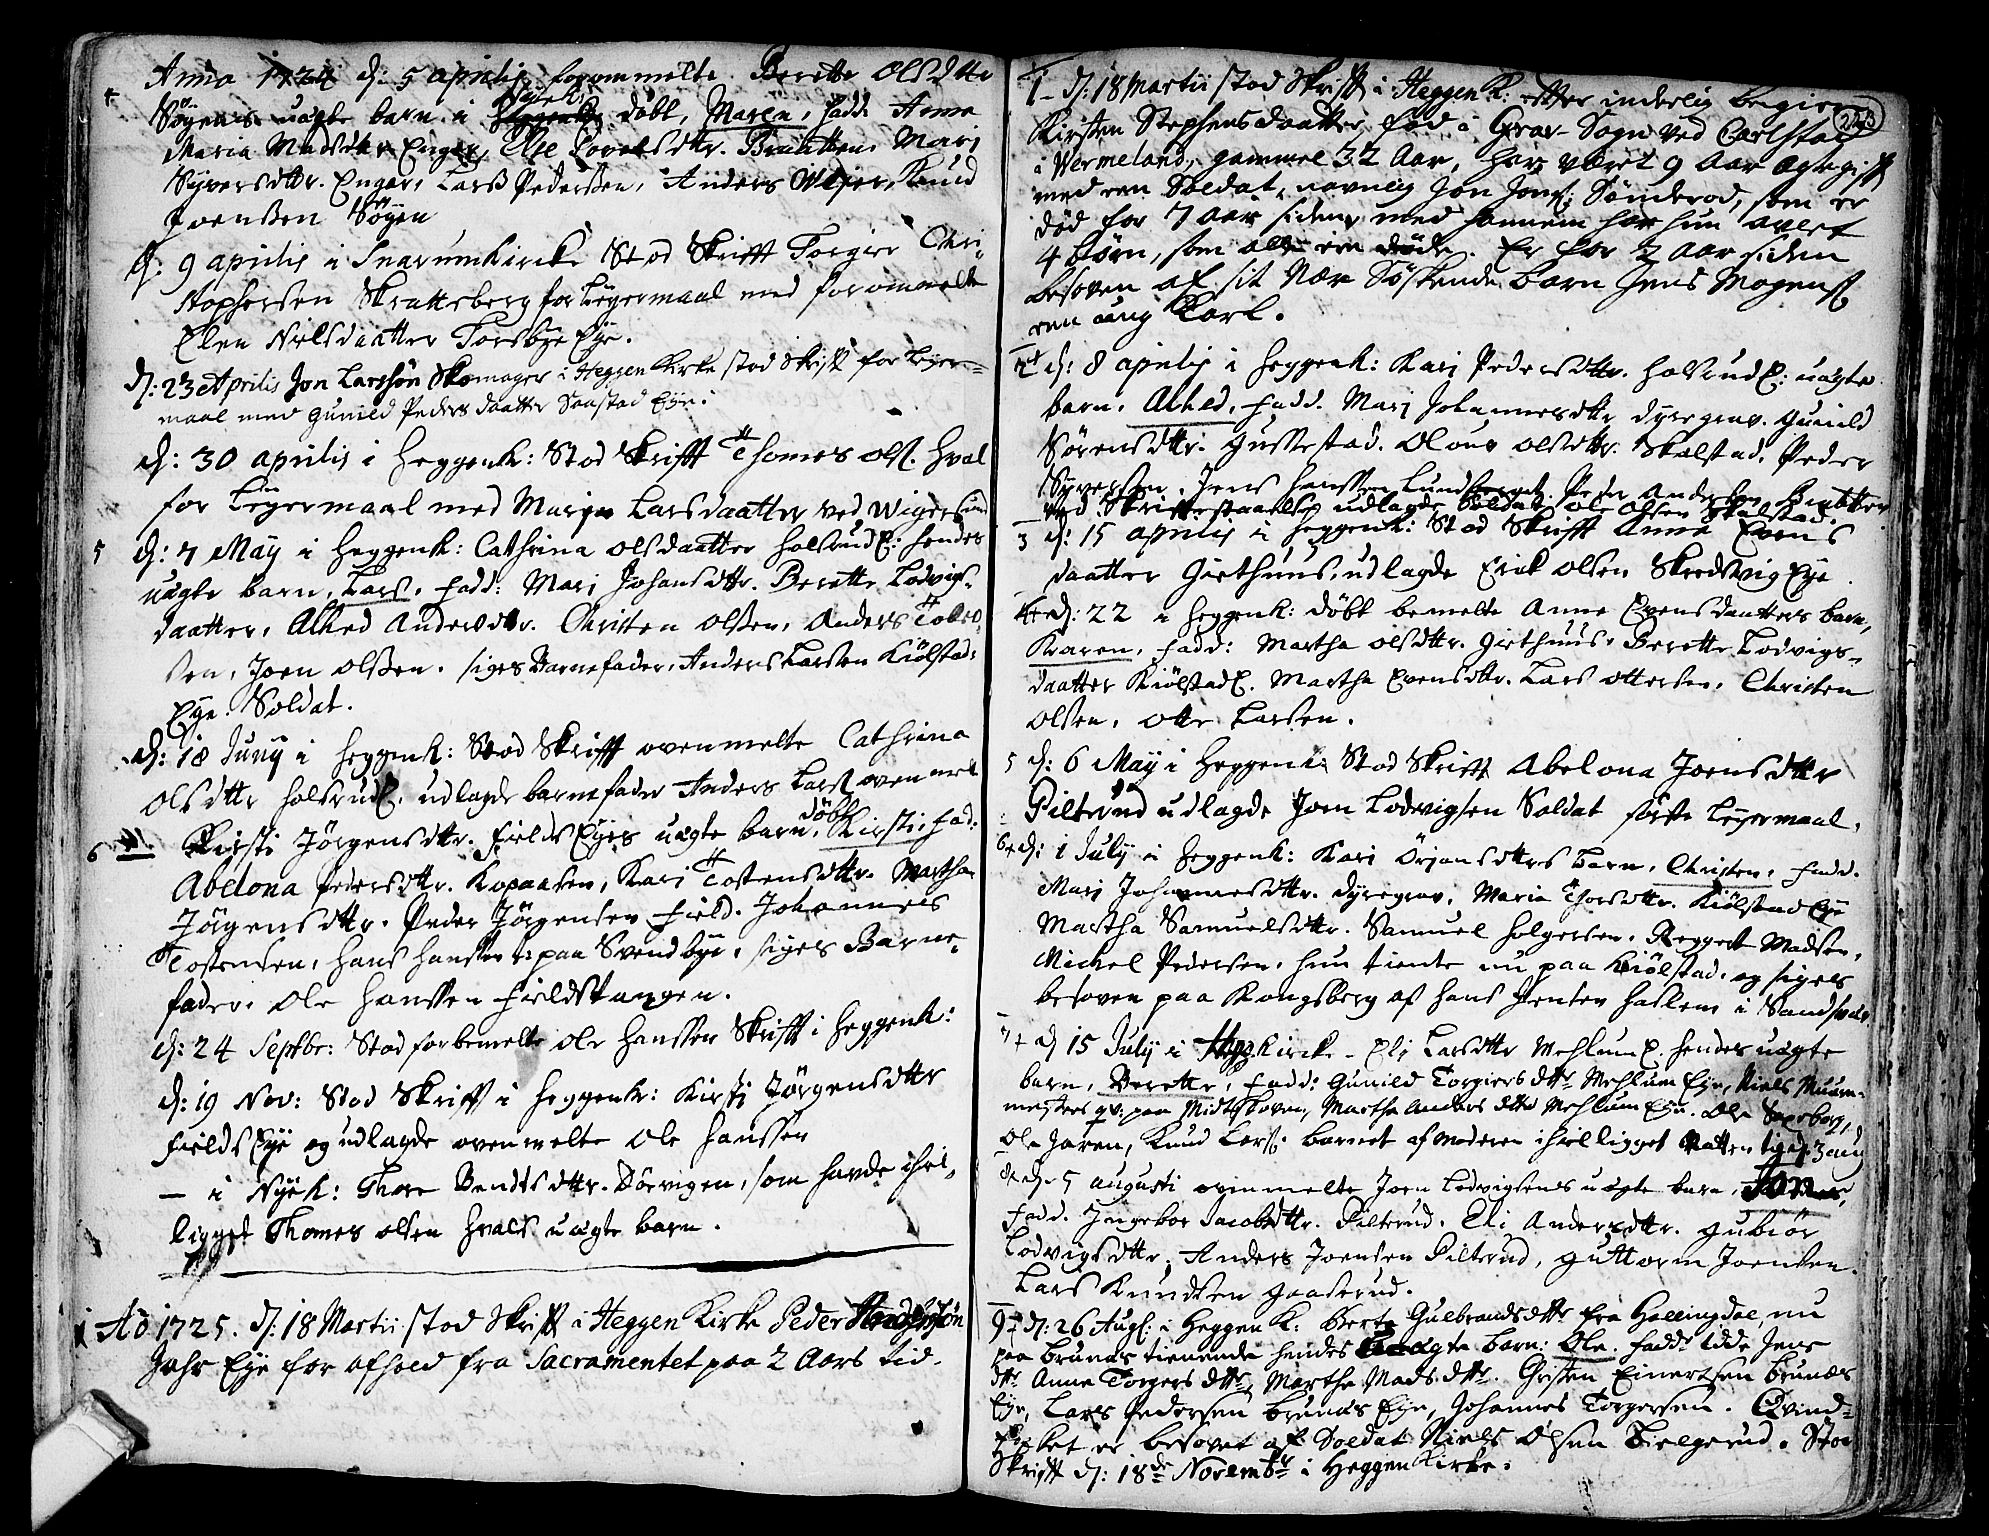 Anno 1724 d: 5 aprilis forommelte Berette Olsdtter
4 Søyens uægte barn i Nyek: døbt, Maren, fadd: Anne
Maria Madsdttr Enger, Else Torelsdttr. Braatten, Mari
Syversdttr. Enger, Lars Pedersen, Anders Weser, Knud
Joensen Søyen
d: 9 aprilis i Snarumkircke Stod Skrifft Torgier Chri-
stophersen Skratteberg for Leyermaal med forommelte
Elen Nielsdaatter Foesbye Eye.
d: 23 Aprilis Jon Larssøn Skomager i Heggen Kirke stod Skrifft for Leyer-
maal med Gunild Peders daatter Saastad Eye.
d: 30 aprilis i Heggenk: Stod Skrifft Thomes Ols. Hval
for Leyermaal med Marje Larsdaatter ved Wigersund
5 d: 7 May i Heggenk: Cathrina Olsdaatter Holsrud E: hendes
uægte barn, Lars, fadd: Mari Johansdttr. Berette Lodvigs-
daatter, Alhed Andersdttr. Christen Olsen, Anders Tolev-
sen, Joen Olssen. siges Barnefader, Anders Larsen Kiølstad
Eye. Soldat.
d: 18 Juny i Heggenk: Stod Skrifft ovenmelte Cathrina
Olsdttr Holsrud E. udlagde barnefader Anders Lars. ovenmelt
6 Kirsti Jørgensdttr. Fields Eyes uægte barn døbt, Kirsti, fad:
Abelona Pedersdttr. Kopaasen, Kari Tostensdttr. Martha
Jørgensdttr. Peder Jørgensen Field. Johannes
Tostensen, Hans Hanssen paa Svendbye, siges Barne-
fader. Ole Hanssen Fieldstangen.
d: 24 Septbr: Stod forbemelte Ole Hanssen Skrifft i Heggenk:
d: 19 Nov: Stod Skrifft i Heggenk: Kirsti Jørgensdttr
Fields Eye og udlagde ovenmelte Ole Hanssen
– i Nyek: Thore Bendtsdttr. Dørvigen, som havde ihiel-
ligget Thomes Olsen Hvals uægte barn.
1 Ao 1725. d: 18 Martii stod Skrifft i Heggen Kirke Peder
Jahr Eye for afhold fra Sacramentet paa 2 Aars tid.
223
1 – d: 18 Martii stod Skrifft i Heggen K: efter inderlig begier
Kirsten Stephensdaatter fød i Grav-Sogn ved Carlstad
i Wermeland, gammel 32 Aar, har været 9 Aar ægtegift
med een Soldat, navnlig Jon Jons. Sønderod, som er
død for 7 aar siden, med hannem har hun avlet
4 børn, som alle ere døde. Er for 2 aar siden
besoven af sit Nær Søskende barn Jens Mogens.
een ung Karl.
2 d: 8 aprilis i Heggenk: Kari Pedersdttr. Holsrud E: uægte
barn, Alhed, fadd. Marj Johannesdttr Dyregrav. Gunild
Sørensdttr. Gussestad. Olouv Olsdttr. Skalstad. Peder
Syversen. Jens Hanssen Lundberget. Peder Andersen Bratten
ved Skriftestaalen udlagde Soldat Ole Olsen Skalstad.
3 d: 15 aprilis i Heggenk: Stod Skrifft Anne Evens
daatter Giethuus, udlagde Erik Olsen Skredsvig Eye.
4 d: 22 i Heggenk: døbt bemelte Anne Evensdaatters barn,
Karen, fadd: Martha Olsdttr. Giethuus. Berette Lodvigs-
daatter Kiølstad E. Martha Evensdttr. Lars Ottersen, Christen
Olsen, Otte Larsen.
5 d: 6 May i Heggenk: Stod Skrifft Abelona Joensdttr
Pilterud udlagde Joen Lodvigsen Soldat første Leyermaal.
6 d: 1 July i Heggenk: Kari Ørjansdttrs barn, Christen, fadd.
Marj Johannesdttr. Dyregrav. Maria Thorsdttr. Kiølstad Eye
Martha Samuelsdttr. Samuel Holgersen. Reggert Madsen,
Michel Pedersen. hun tiente nu paa Kiølstad, og siges
besoven paa Kongsberg af Hans Jensen Haslem i Sandsvær
7 d 15 July i kircke – Eli Larsdttr Mehlum E. hendes uægte
barn, Berette, fadd: Gunild Torgiersdttr Mehlum Eye, Niels Muur-
mesters qv: paa Midtskoven, Martha Andersdttr Mehlum Eye. Ole Soneborg,
Ole Jaren, Knud Lars. barnet af Moderen ihielligget Natten til d: 3 aug
8 d. 5 augusti ovenmelte Joen Lodvigsens uægte barn, Jon
fadd. Ingebor Jacobsdttr. Pilterud. Eli Andersdttr. Gubiør
Lodvigsdttr, Anders Joensen Pilterud, Guttorm Joensen.
Lars Knudsen Gaaserud.
9 d: 26 Augs. i Heggen K: Berte Gulbrandsdttr fra Hallingdal, nu
paa Brunæs tienende hendes uægte barn: Ole. fadd: Idde Jens
dttr Anne Torgersdttr, Marthe Madsdttr. Christen Einertsen Brunæs
Eye, Lars Pedersen Brunæs Eye, Johannes Torgersen. Qvind-
folket er besovet af Soldat Niels Olsen Bielgerud. Stod
Skrifft d: 18de Novembr i Heggen Kirke.